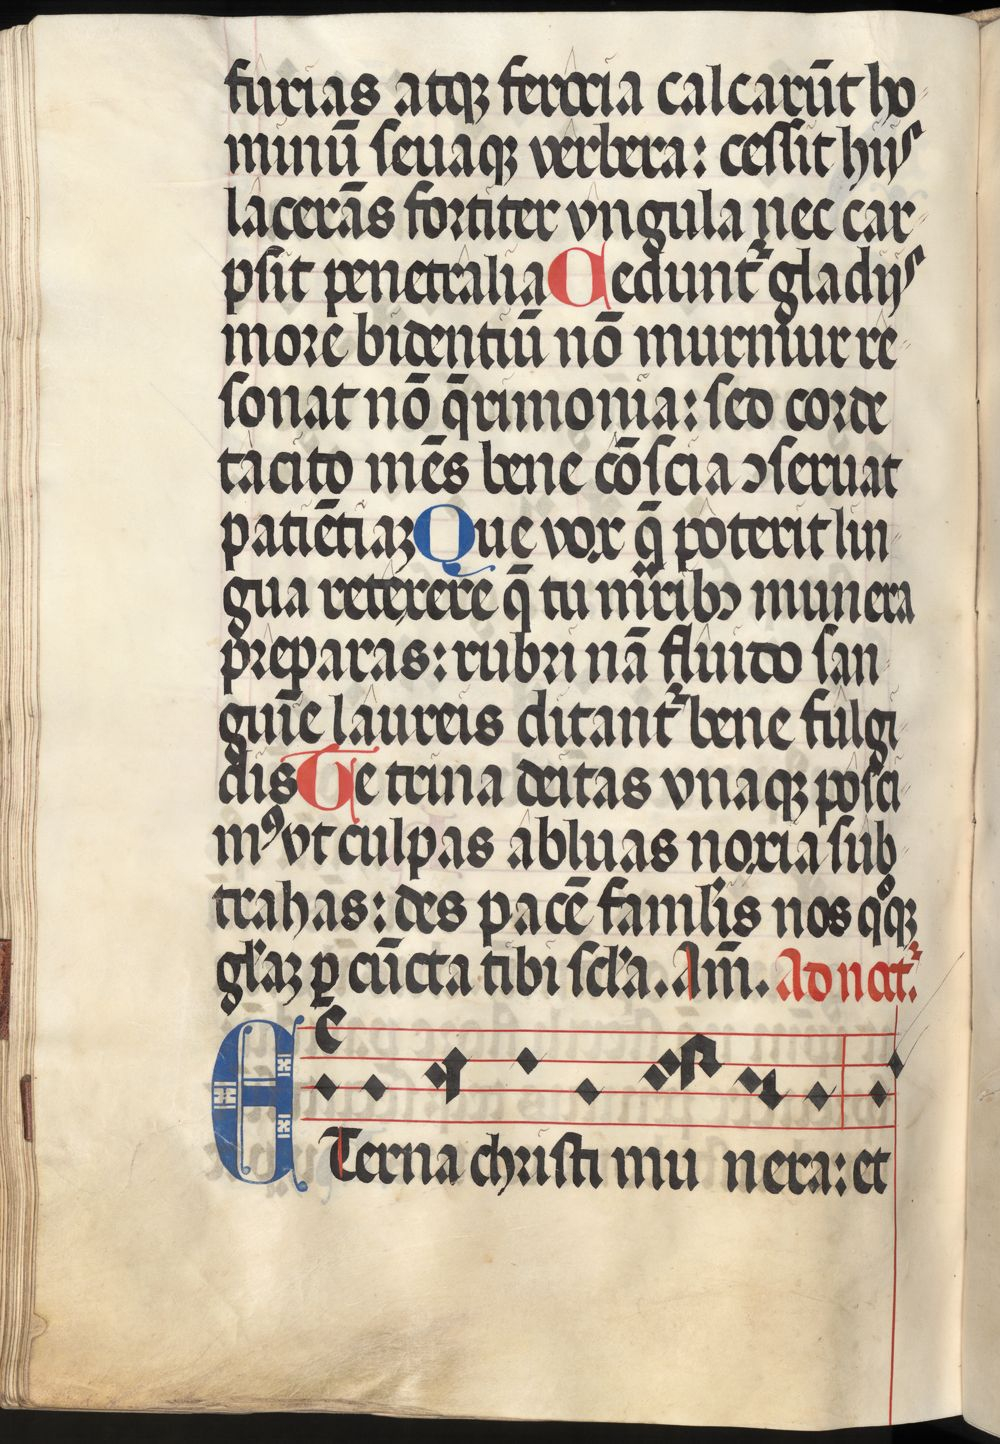 furias atqꝫ ferocia calcarūt ho
minū seuaqꝫ verbera: cessit hijs
lacerās fortiter vngula nec car
psit penetralia Ceduntᷣ gladijs
more bidentiū nō murmur re
sonat nō q̄rimonia: sed corde
tacito mēs bene cōscia ↄseruat
patiētiaꝫ Que vox q̄ poterit lin
gua retexere q̄ tu mr̄ribꝰ munera
preparas: rubri nā fluido san
guīe laureis ditantᷣ bene fulgi
dis Te trina deitas vnaqꝫ posci
mꝰ vt culpas abluas noxia sub
trahas: des pacē famlis nos qͦqꝫ
gl'aꝫ ꝑ cūcta tibi scl'a. Am̄. Ad noct.
ETerna christi mu nera: et